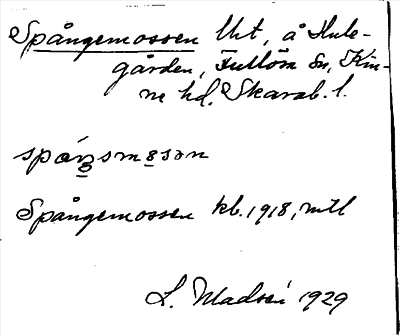 Spångemossen Urt, å Hule-
gården, Fullösa Sn, Kin-
ne hd. Skarab. l.
Spångemossen kb. 1918, mtl
L. Madsén 1929